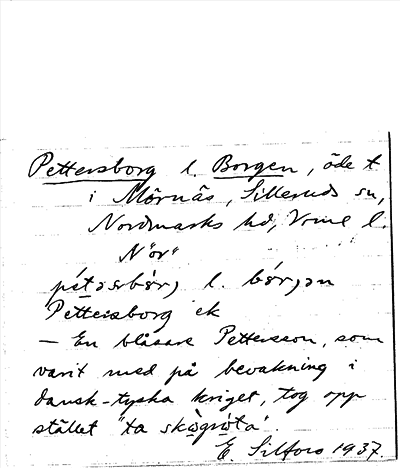 Pettersborg l. Borgen, öde t
i Mörnäs, Silleruds sn,
Nordmarks hd, Värml l.
"Nör"
pétərsbórj l. bórjən
Pettersborg ek
— En blåsare Pettersson, som
varit med på bevakning i
dansk-tyska kriget, tog opp
stället "ta skògròta".
E. Silfors 1937.